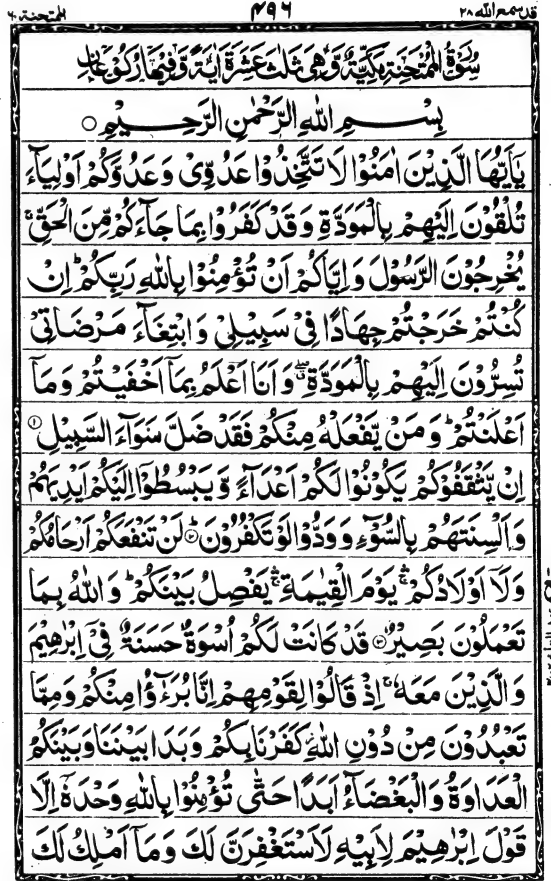 قد سمع الله ٢٨
۴۹۶
الممتحنة ٦٠
سُوْرَةُ الْمُمْتَحِنَةِ وَّهِيَ ثَلٰثَ عَشْرَةَ اٰيَةً وَّفِيْهَا رُكُوْعَانِ
بِسْمِ اللّٰهِ الرَّحْمٰنِ الرَّحِيْمِ ○
يٰۤاَيُّهَا الَّذِيْنَ اٰمَنُوْا لَا تَتَّخِذُوْا عَدُوِّيْ وَعَدُوَّكُمْ اَوْلِيَآءَ
تُلْقُوْنَ اِلَيْهِمْ بِالْمَوَدَّةِ وَقَدْ كَفَرُوْا بِمَا جَآءَكُمْ مِّنَ الْحَقِّ ۚ
يُخْرِجُوْنَ الرَّسُوْلَ وَاِيَّاكُمْ اَنْ تُؤْمِنُوْا بِاللّٰهِ رَبِّكُمْ ؕ اِنْ
كُنْتُمْ خَرَجْتُمْ جِهَادًا فِيْ سَبِيْلِيْ وَابْتِغَآءَ مَرْضَاتِيْ
تُسِرُّوْنَ اِلَيْهِمْ بِالْمَوَدَّةِ ۖ وَاَنَا اَعْلَمُ بِمَاۤ اَخْفَيْتُمْ وَمَاۤ
اَعْلَنْتُمْ ؕ وَمَنْ يَّفْعَلْهُ مِنْكُمْ فَقَدْ ضَلَّ سَوَآءَ السَّبِيْلِ ①
اِنْ يَّثْقَفُوْكُمْ يَكُوْنُوْا لَكُمْ اَعْدَآءً وَّيَبْسُطُوْۤا اِلَيْكُمْ اَيْدِيَهُمْ
وَاَلْسِنَتَهُمْ بِالسُّوْٓءِ وَوَدُّوْا لَوْ تَكْفُرُوْنَ ؕ② لَنْ تَنْفَعَكُمْ اَرْحَامُكُمْ
وَلَاۤ اَوْلَادُكُمْ ۛۚ يَوْمَ الْقِيٰمَةِ ۛۚ يَفْصِلُ بَيْنَكُمْ ؕ وَاللّٰهُ بِمَا
تَعْمَلُوْنَ بَصِيْرٌ ③ قَدْ كَانَتْ لَكُمْ اُسْوَةٌ حَسَنَةٌ فِيْۤ اِبْرٰهِيْمَ
وَالَّذِيْنَ مَعَهٗ ۚ اِذْ قَالُوْا لِقَوْمِهِمْ اِنَّا بُرَءٰٓؤُا مِنْكُمْ وَمِمَّا
تَعْبُدُوْنَ مِنْ دُوْنِ اللّٰهِ ؗ كَفَرْنَا بِكُمْ وَبَدَا بَيْنَنَا وَبَيْنَكُمُ
الْعَدَاوَةُ وَالْبَغْضَآءُ اَبَدًا حَتّٰى تُؤْمِنُوْا بِاللّٰهِ وَحْدَهٗۤ اِلَّا
قَوْلَ اِبْرٰهِيْمَ لِاَبِيْهِ لَاَسْتَغْفِرَنَّ لَكَ وَمَاۤ اَمْلِكُ لَكَ